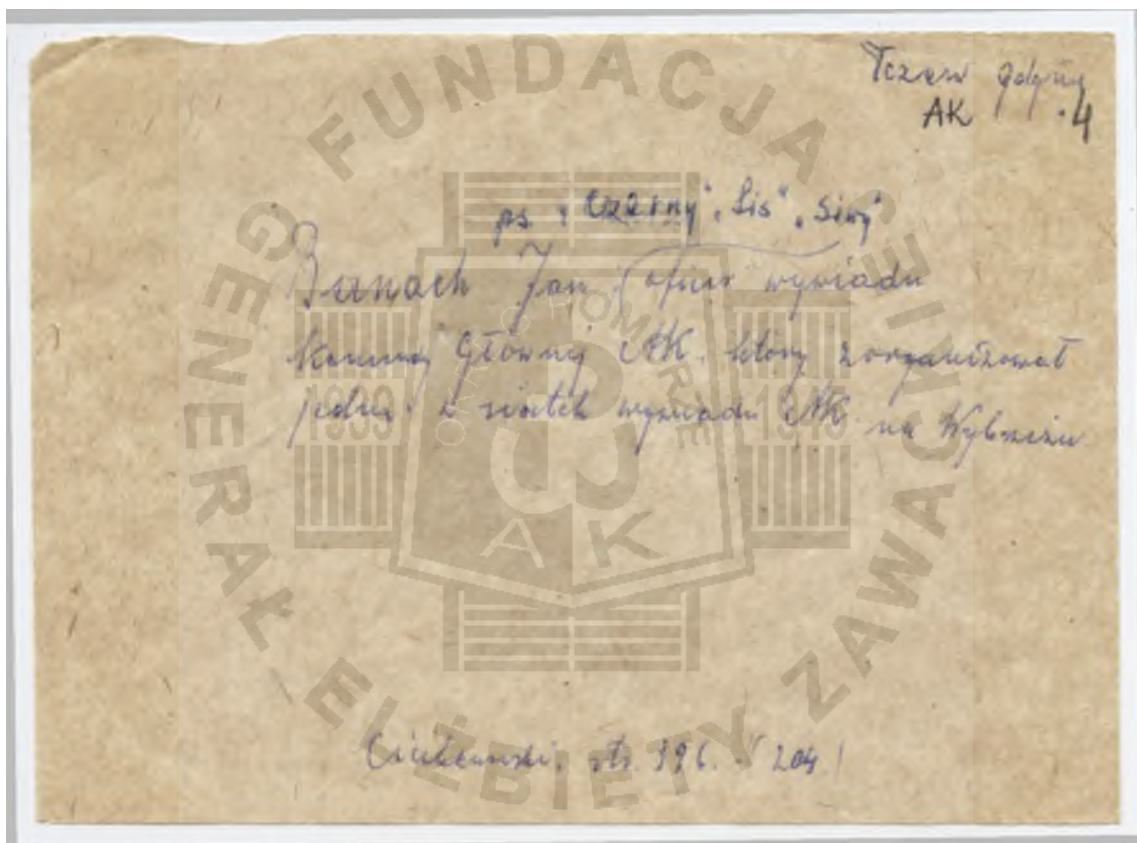 Tczew Gdynia
AK .4
ps. "Czarny", "Lis", "Siwy"
Bernach Jan oficer wywiadu
Komendy Głównej AK, który zorganizował
jedną z siatek wywiadu AK na Wybrzeżu
Ciechanowski, str. 396. 204
FUNDACJA GENERAŁ ELŻBIETY ZAWACKIEJ
1939 1945
POMORZE
AK